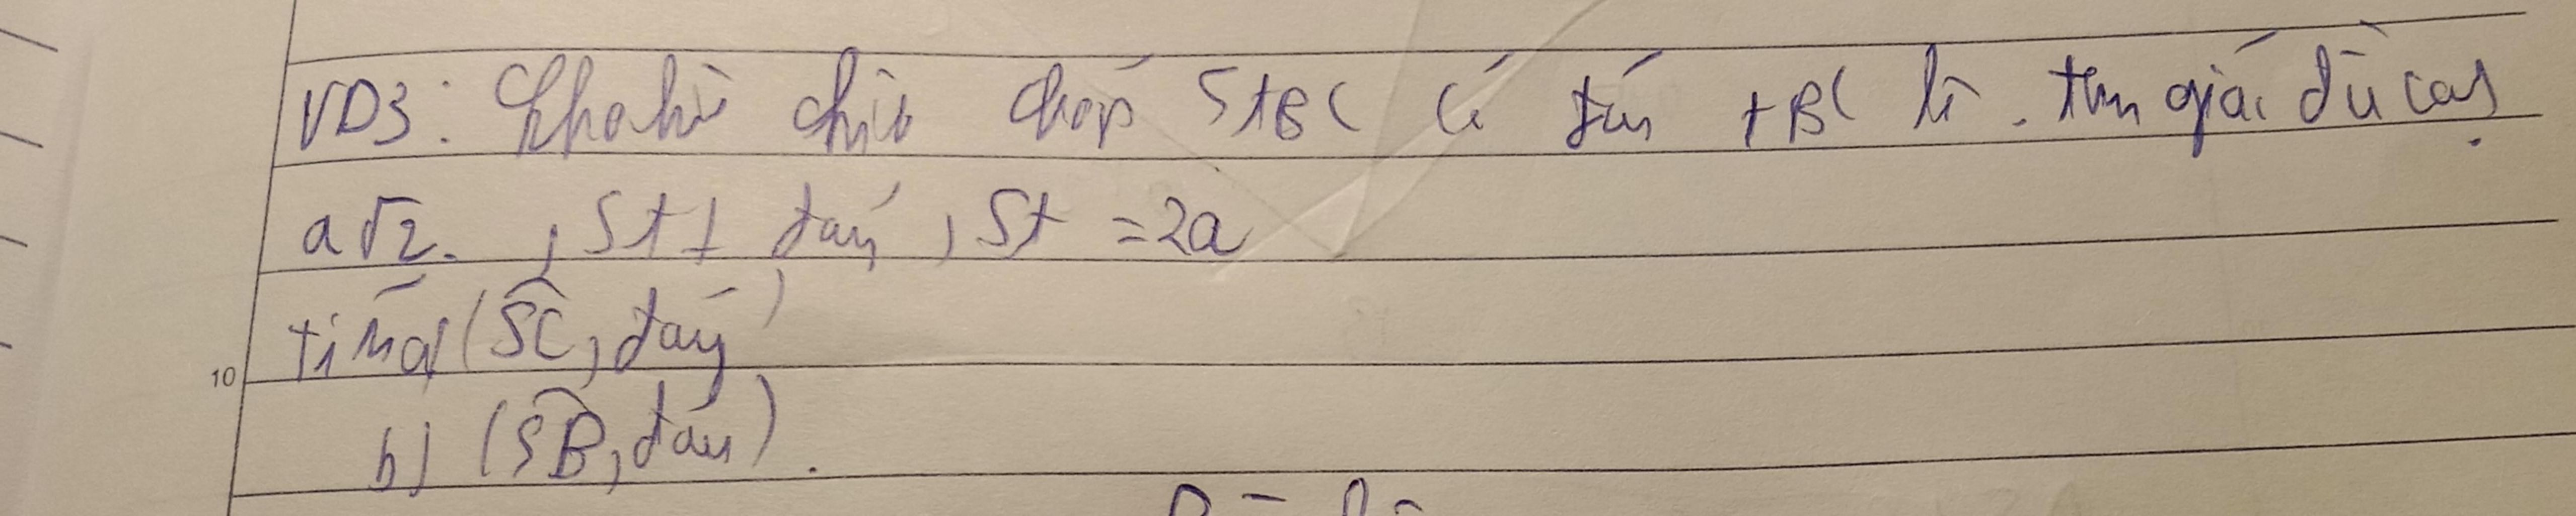 VD3: Cho hình chóp SABC có đáy ABC là tam giác đều cạnh
a√2. , SA ⊥ đáy , SA = 2a
tìm a) (SC, đáy)
10
b) (SB, đáy).